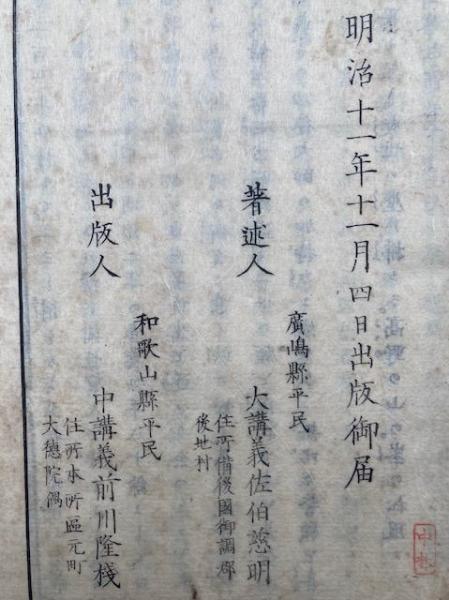 明治十一年十一月四日出版御届
廣嶋縣平民
著述人 大講義佐伯慈明
住所備後國御調郡
後地村
和歌山縣平民
出版人 中講義前川隆棧
住所本所區元町
大德院偶